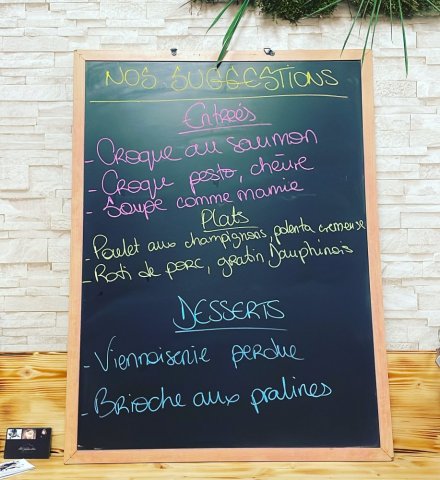 NOS SUGGESTIONS
Entrées
- Croque au saumon
- Croque pesto, chèvre
- Soupe comme mamie
Plats
- Poulet aux champignons, polenta crémeuse
- Roti de porc, gratin Dauphinois
DESSERTS
- Viennoiserie perdue
- Brioche aux pralines